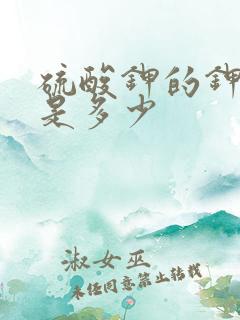 硫酸钾的钾
是多少
淑女巫
未经同意禁止转载